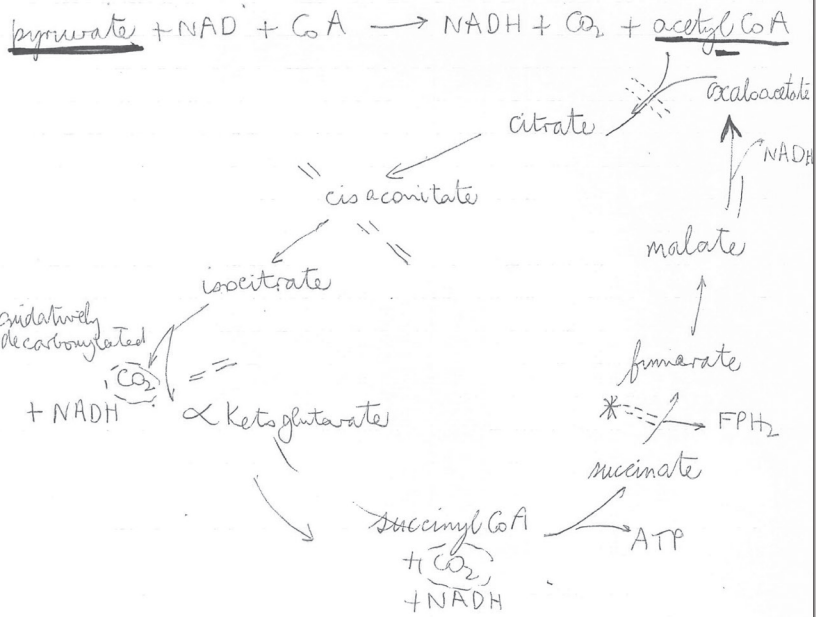 pyruvate + NAD + CoA → NADH + CO₂ + acetyl CoA
oxaloacetate
citrate
NADH
cis aconitate
malate
isocitrate
oxidatively
decarboxylated
CO₂
+ NADH
fumarate
α Ketoglutarate
* FPH₂
succinate
succinyl CoA
ATP
+ CO₂
+ NADH